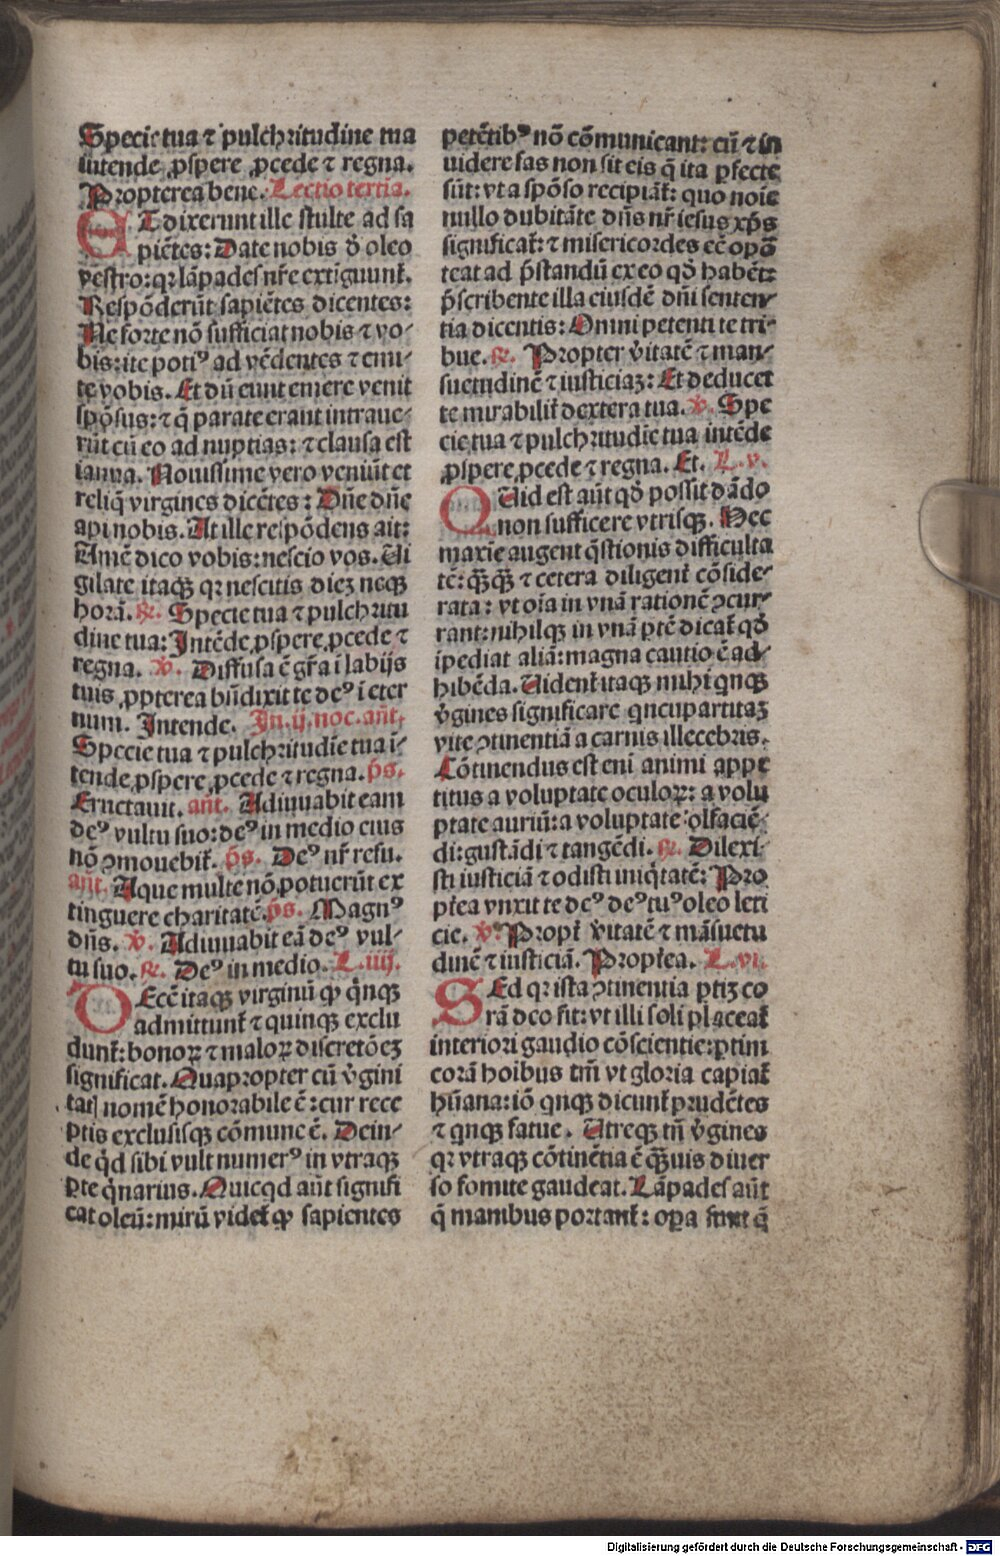 Specie tua ⁊ pulchritudine tua
intende ꝓspere ꝓcede ⁊ regna.
Propterea bene. Lectio tertia.
ET dixerunt ille stulte ad sa
piẽtes: Date nobis ď oleo
vestro: qꝛ lãpades nr̃e extiguunt᷑.
Respõderũt sapiẽtes dicentes:
Ne forte nõ sufficiat nobis ⁊ vo-
bis: ite potiꝰ ad vẽdentes ⁊ emi-
te vobis. Et dũ eunt emere venit
spõsus: ⁊ q̃ parate erant intraue-
rũt cũ eo ad nuptias: ⁊ clausa est
ianua. Nouissime vero veniũt et
reliq̃ virgines dicẽtes: Dñe dñe
api nobis. At ille respõdens ait:
Amẽ dico vobis: nescio vos. Ui
gilate itaqꝫ qꝛ nescitis dieꝫ neqꝫ
horã. ℟. Specie tua ⁊ pulchritu
dine tua: Intẽde ꝓspere ꝓcede ⁊
regna. ℣. Diffusa ẽ gr̃a i labijs
tuis ꝓpterea bñdixit te deꝰ i eter
num. Intende. In .ij. noc. añt.
Specie tua ⁊ pulchritudĩe tua i-
tende ꝓspere ꝓcede ⁊ regna. p̃s.
Eructauit. añt. Adiuuabit eam
deꝰ vultu suo: deꝰ in medio eius
nõ ꝯmouebit᷑. p̃s. Deꝰ nr̃ refu.
añt. Aque multe nõ potuerũt ex
tinguere charitatẽ. p̃s. Magnꝰ
dñs. ℣. Adiuuabit eã deꝰ vul-
tu suo. ℟. Deꝰ in medio. L.iiij.
QEcẽ itaqꝫ virginũ ꝙ q̃nqꝫ
admittunt᷑ ⁊ quinqꝫ exclu
dunt᷑: bonoꝝ ⁊ maloꝝ discretõeꝫ
significat. Quapropter cũ v̓gini
tatꝭ nomẽ honorabile ẽ: cur rece
ptis exclusisqꝫ cõmune ẽ. Dein-
de q̇d sibi vult numerꝰ in vtraqꝫ
ꝑte q̃narius. Quicqd aũt signifi
cat oleũ: mirũ videt᷑ ꝙ sapientes
petẽtibꝰ nõ cõmunicant: cũ ⁊ in
uidere fas non sit eis q̃ ita ꝑfecte
sũt: vt a spõso recipiãt᷑: quo noie
nullo dubitãte dñs nr̃ iesus xp̃s
significat᷑: ⁊ misericordes eẽ opõ
teat ad p̃standũ ex eo qď habẽt:
p̃scribente illa eiusdẽ dñi senten-
tia dicentis: Omni petenti te tri-
bue. ℟. Propter v̓itatẽ ⁊ man-
suetudinẽ ⁊ iusticiaꝫ: Et deducet
te mirabilit᷑ dextera tua. ℣. Spe
cie tua ⁊ pulchritudĩe tua intẽde
ꝓspere ꝓcede ⁊ regna. Et. L.v.
QUid est aũt qď possit dãdo
non sufficere vtrisqꝫ. Nec
maxĩe augent q̃stionis difficulta
tẽ: q̃ꝫqꝫ ⁊ cetera diligent᷑ cõside-
rata: vt oĩa in vnã rationẽ ꝯcur-
rant: nihilqꝫ in vnã ꝑtẽ dicat᷑ qď
ipediat aliã: magna cautio ẽ ad-
hibẽda. Uident᷑ itaqꝫ mihi qnqꝫ
v̓gines significare qncupartitaꝫ
vite ꝯtinentiã a carnis illecebris.
Cõtinendus est eni animi appe
titus a voluptate oculoꝝ: a volu
ptate auriũ: a voluptate olfaciẽ-
di: gustãdi ⁊ tangẽdi. ℟. Dilexi-
sti iusticiã ⁊ odisti iniq̇tatẽ: Pro
pt̓ea vnxit te deꝰ deꝰ tuꝰ oleo leti
cie. ℣. Propt᷑ v̓itatẽ ⁊ mãsuetu
dinẽ ⁊ iusticiã. Propt̓ea. L.vi.
SEd qꝛ ista ꝯtinentia ptiꝫ co
rã deo fit: vt illi soli placeat᷑
interiori gaudio cõscientie: ꝑtim
corã hoibus tm̃ vt gloria capiat᷑
hũana: iõ qnqꝫ dicunt᷑ prudẽtes
⁊ qnqꝫ fatue. Utreqꝫ tñ v̓gines
qꝛ vtraqꝫ cõtinẽtia ẽ q̃ꝫuis diuer
so fomite gaudeat. Lãpades aũt
q̃ manibus portant᷑: oꝑa sunt q̃
Digitalisierung gefördert durch die Deutsche Forschungsgemeinschaft - DFG